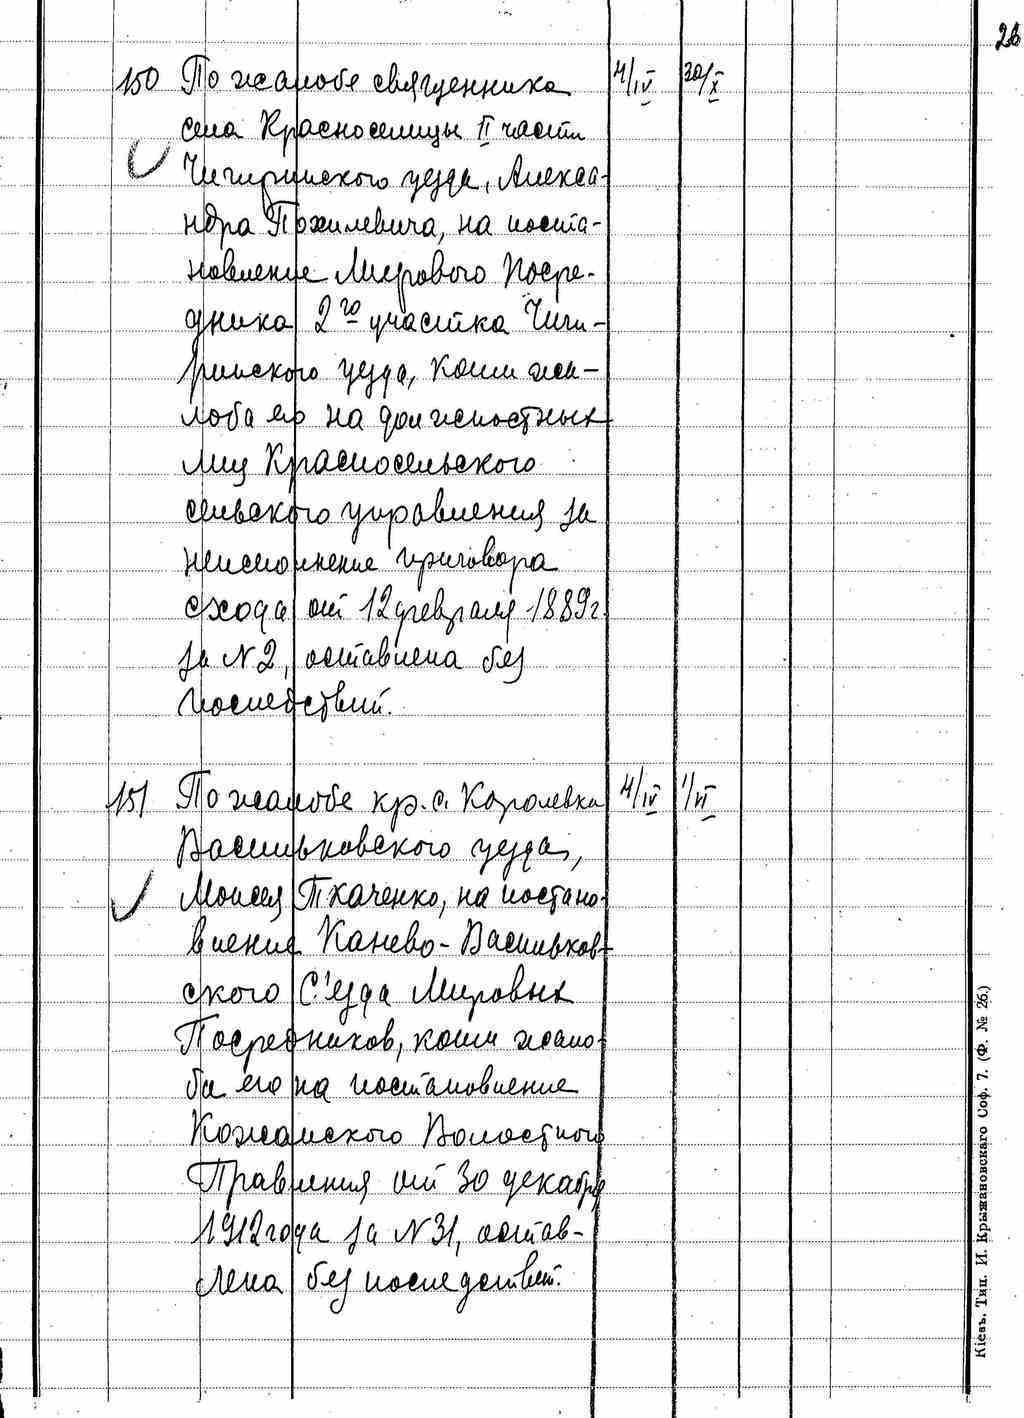 26
150 По жалобе священника 4/IV 30/X
села Красноселицы II части
Чигиринского уезда, Алекса-
ндра Похилевича, на поста-
новление Мирового Посре-
дника 2го участка Чиги-
ринского уезда, коим жа-
лоба его на должностных
лиц Красносельского
сельского управления за
неисполнение приговора
схода от 12 февраля 1889 г.
за N 2, оставлена без
последствий.
151 По жалобе кр. с. Королевка 4/IV 1/VI
Васильковского уезда,
Моисея Ткаченко, на постано-
вление Канево-Васильков-
ского С'езда Мировых
Посредников, коим жало-
ба его на постановление
Кожанского Волостного
Правления от 30 декабря
1912 года за N 31, остав-
лена без последствий.
Кіевъ. Тип. И. Крыжановскаго Соф. 7. (Ф. № 26.)